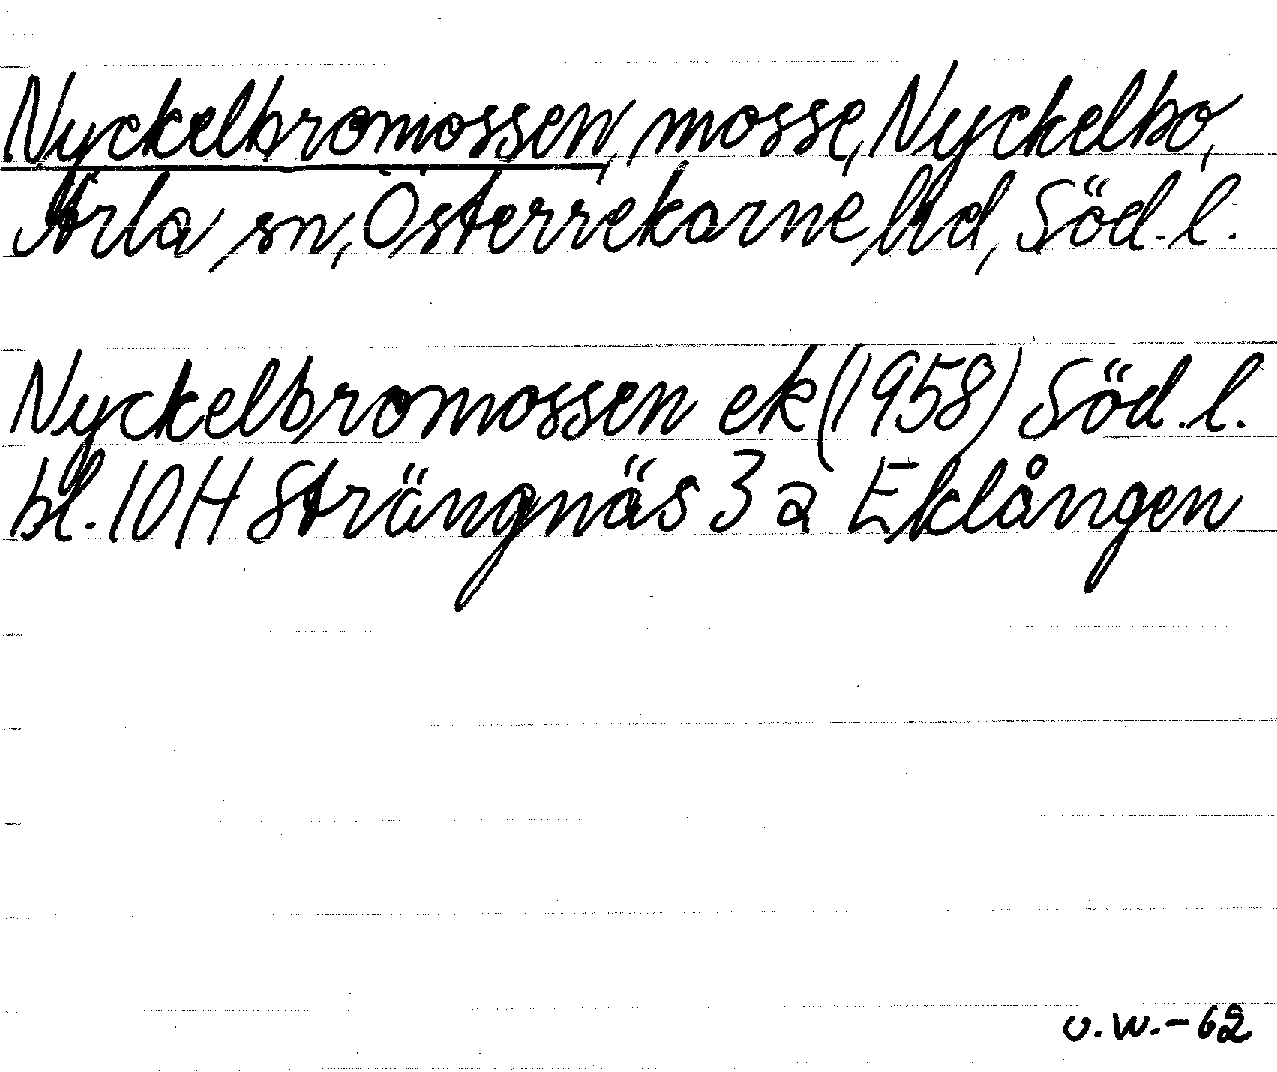 Nyckelbromossen, mosse, Nyckelbo,
Ärla sn, Österrekarne hd, Söd. l.
Nyckelbromossen ek (1958) Söd. l.
bl. 10H Strängnäs 3 a Eklången
U.W.-62